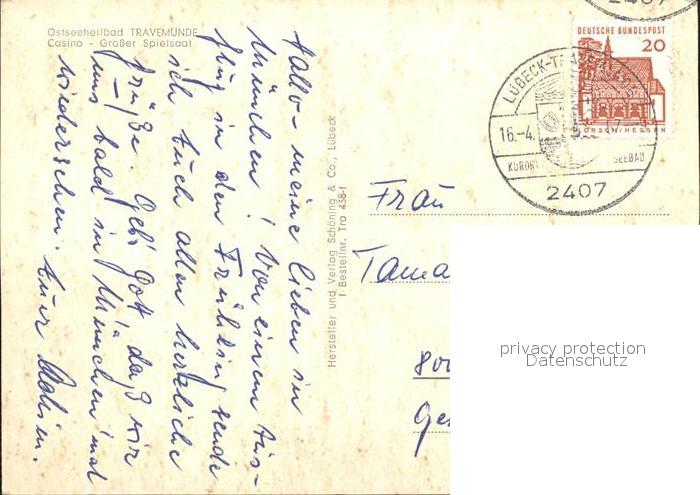 Ostseeheilbad TRAVEMÜNDE
Casino - Großer Spielsaal
Hallo - meine lieben in
München! Von einem Aus-
flug in den Frühling sende
ich Euch allen herzliche
Grüße. Geb's Gott, daß wir
uns bald in München mal
wiedersehen. Eure
Hersteller und Verlag Schöning & Co., Lübeck
Bestellnr. Tra 438
DEUTSCHE BUNDESPOST
20
LORSCH/HESSEN
LÜBECK-
16.-4.
KURORT
SEEBAD
2407
2407
Frau
privacy protection
Datenschutz